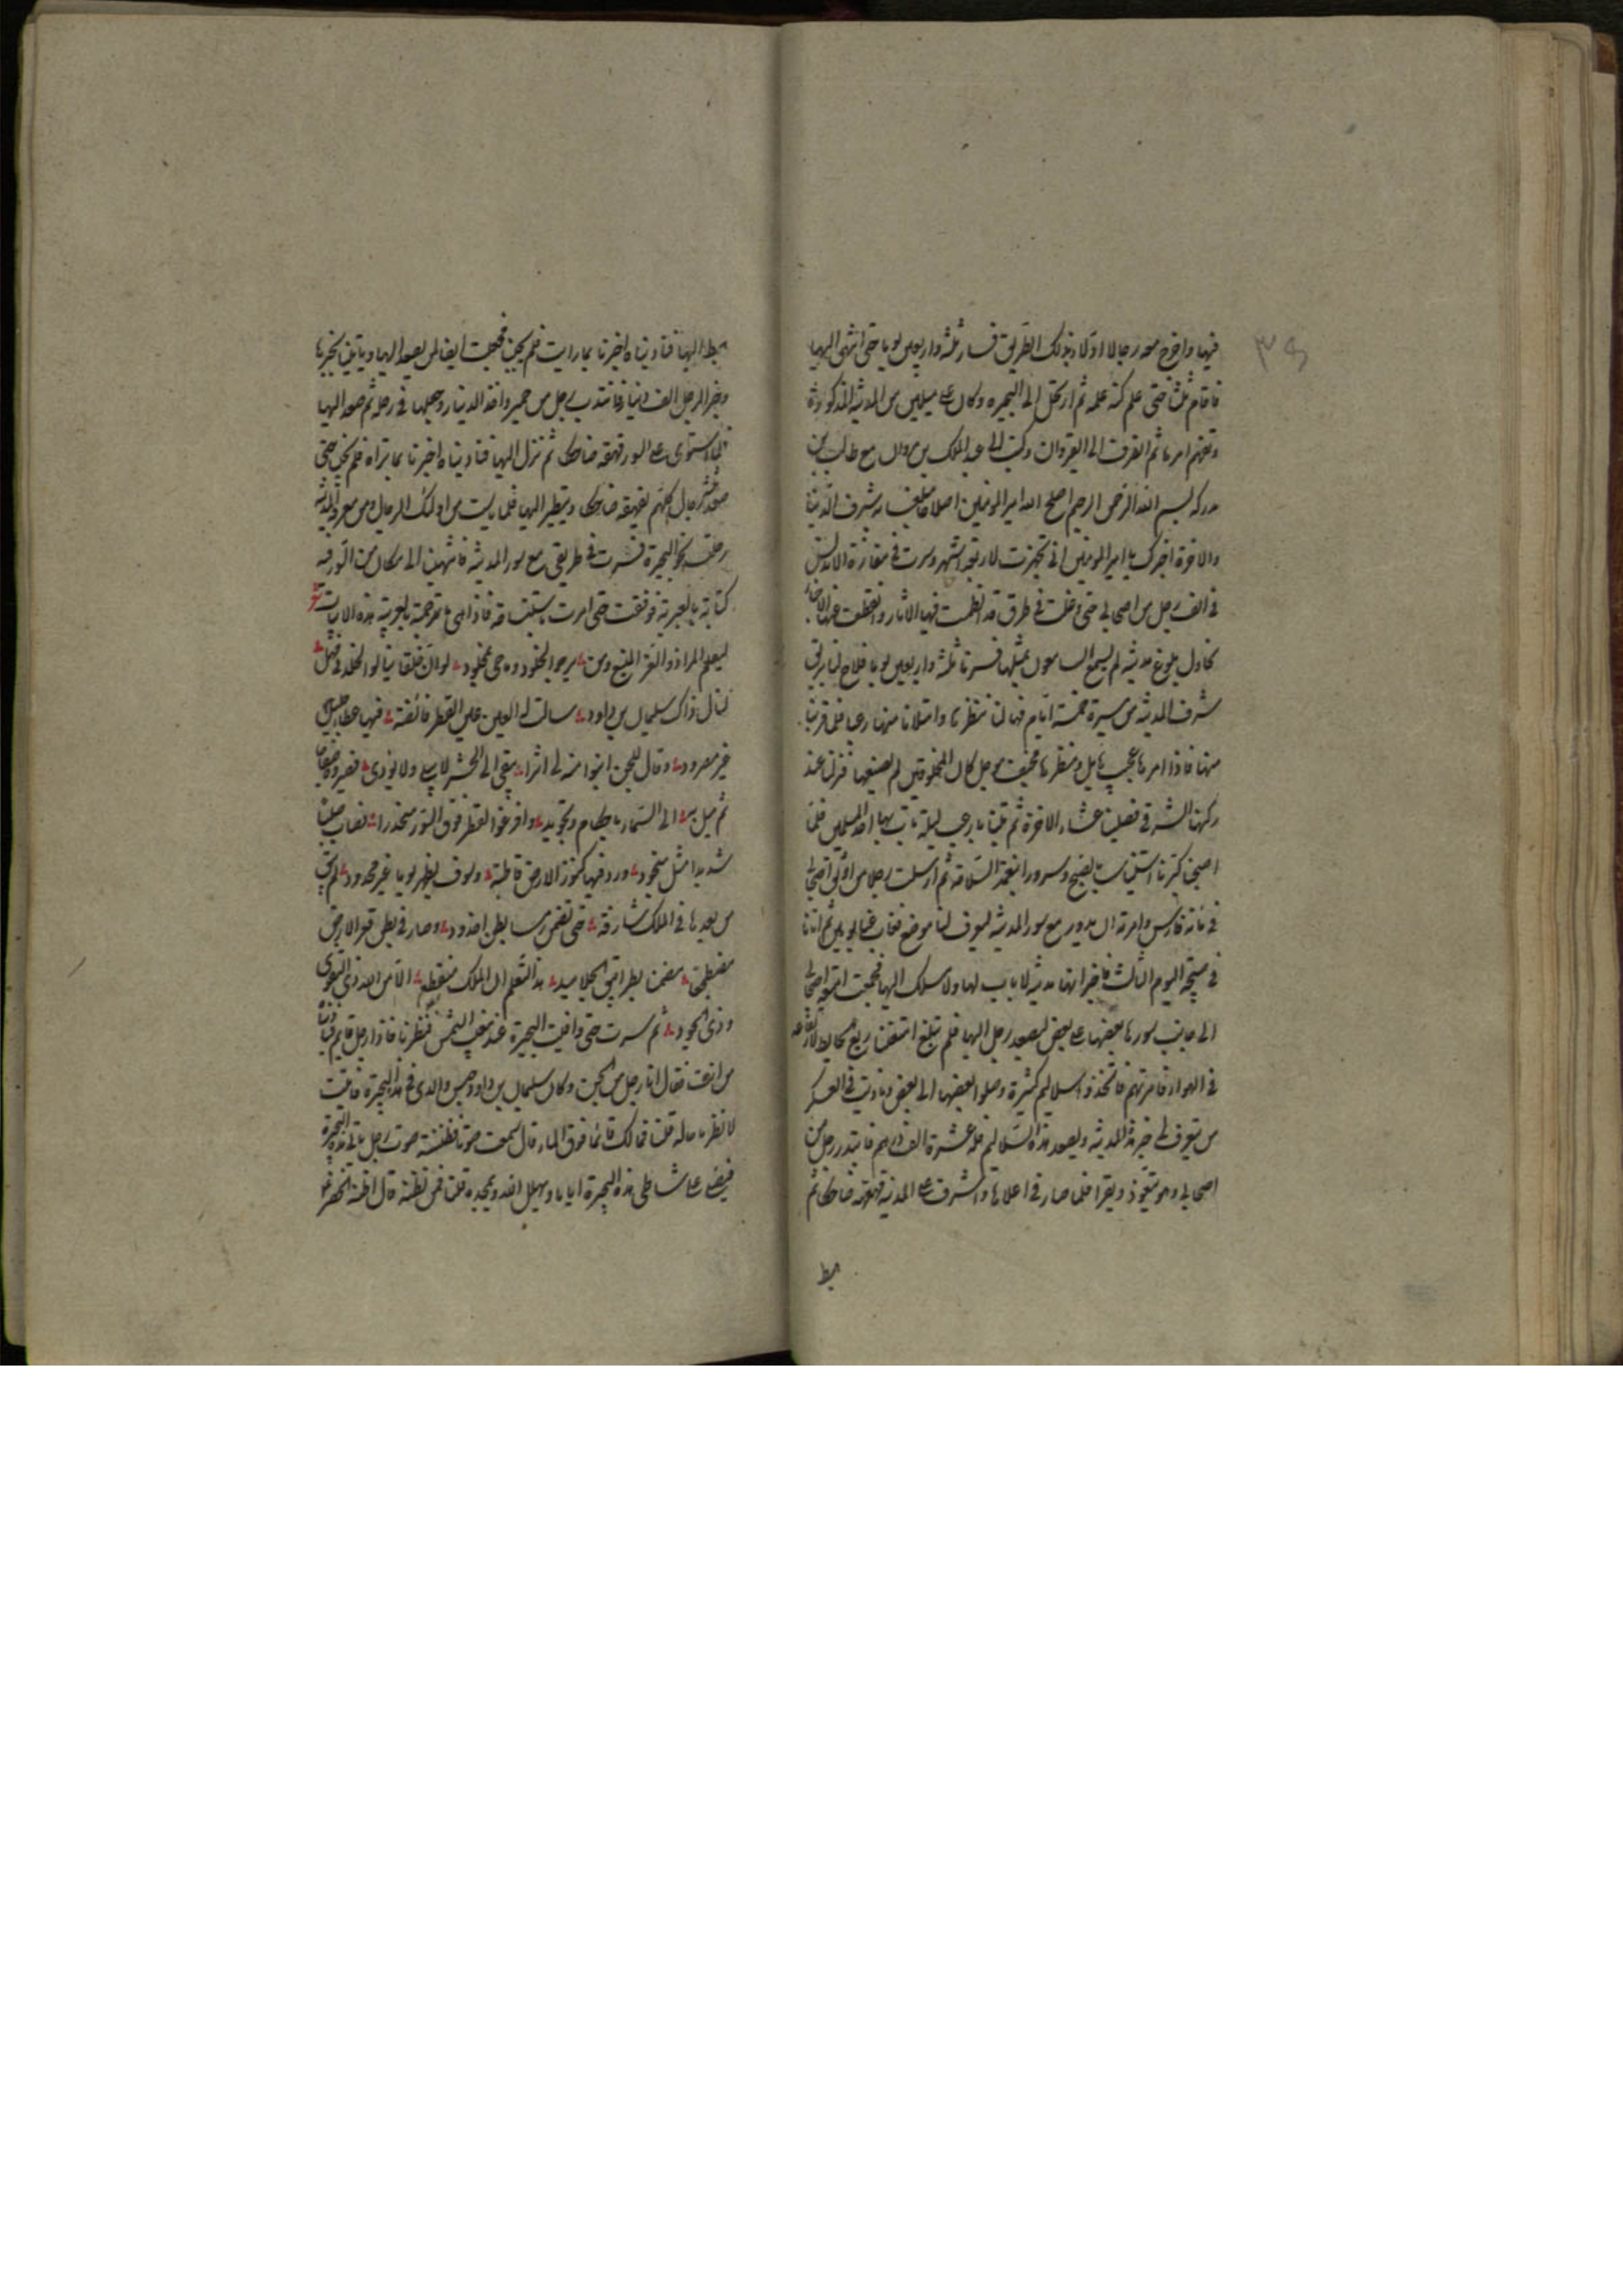 فيها واخرج معه رجالا ادلاء بذلك الطريق فسار ثلثة واربعين يوما حتى انتهى اليها
فاقام ثلثا حتى علم كنه علمه ثم ارتحل الى البحيره وكان على ميلين من المدينة المذكورة
وتفهم امرها ثم انصرف الى القيروان وكتب الى عبد الملك بن مروان مع طالب بن
مدركه بسم الله الرحمن الرحيم اصلح الله امير المومنين اصلاحا يبلغ به شرف الدنيا
والاخرة اخبرك يا امير المومنين انى تجهزت لاربعة اشهر وسرت فى مفازة الاندلس
فى الف رجل من اصحابى حتى وغلت فى طرق قد انطمست فيها الاثار وانقطعت عنها الاخبار
احاول بلوغ مدينة لم يسمع السامعون بمثلها فسرنا ثلثة واربعين يوما فلاح لنا بريق
شرف المدينة من مسيرة خمسة ايام فهالنا منظرها وامتلانا منها رعبا فلما قربنا
منها فاذا امرها عجيب هايل ومنظرها مخيف موجل كان المخلوقين لم يصنعوها فنزلنا عند
ركنها الشرقى فصليت عشاء الاخرة ثم بتنا بارعب ليلة بات بها احد المسلمين فلما
اصبحنا كبرنا استيناسا بالصبح وسرورا بنعمة السلامة ثم ارسلت رجلا من اصحابى
فى مائة فارس وامرته ان يدور مع سور المدينة ليعرف لنا موضع فغاب عنا يومين ثم اتانا
فى صبيحة اليوم الثالث فاخبر انها مدينة لا باب لها ولا مسلك اليها فجمعت امتعة اصحابى
الى جانب سورها بعضها على بعض ليصعد رجل اليها فلم تبلغ امتعتنا ربع الحايط لارتفاعه
فى الهواء فامرتهم فاتخذوا سلاليم كثيرة وصلوا بعضها الى بعض وناديت فى العسكر
من يتعرف لى خبر هذه المدينة ويصعد هذه السلاليم فله عشرة الف درهم فابتدر رجل من
اصحابى وهو يتعوذ ويقرا فلما صار فى اعلاها واشرف على المدينة قهقهة ضاحكا ثم
هبط
هبط اليها فناديناه اخبرنا بما رايت فلم يجبنا فجعلت ايضا لمن يصعد اليها وياتينى بخبرها
وخبر الرجل الف دينار فانتدب رجل من حمير واخذ الدينار وجعلها فى رحله ثم صعد اليها
فلما استوى على السور قهقه ضاحكا ثم نزل اليها فناديناه اخبرنا بما تراه فلم يجب حتى
صعد ثلثة رجال كلهم يقهقه ضاحكا ويتطير اليها فلما يئست من اولئك الرجال ومن معرفة المدينة
رحلت نحو البحيرة فسرت فى طريقى مع سور المدينة فانتهيت الى مكان من السور فيه
كتابة بالعبرية فوقفت حتى امرت باستنساخه فاذا هى ما ترجمته بالعربية هذه الابيات شعر
ليعلم المرء ذو العز المنيع ومن يرجو الخلود وما حى بمخلود لو ان خلقا ينال الخلد فى مهل
لنال ذاك سليمان بن داود سالت له العين عين القطر فائضة فيها عطاء جليل
غير مصرود وقال للجن ابنوا منه لى اثرا يبقى الى الحشر لا يبلى ولا يودى فصيروه صفاحا
ثم ميل به الى السماء باحكام وتجويد وافرغوا القطر فوق السور منحدرا فصار صلبا
شديدا مثل صيخود ورد فيها كنوز الارض قاطبة وسوف يظهر يوما غير محدود لم يبق
من بعدها فى الملك شارفة حتى تضمن رمسا بطن اخدود وصار فى بطن قعر الارض
مضطجعا مضمنا بطرايق الجلاميد هذا لتعلم ان الملك منقطع الا من الله ذى التقوى
وذى الجود ثم سرت حتى وافيت البحيرة عند مغيب الشمس فنظرنا فاذا رجل قايم فناديناه
من انت فقال انا رجل من الجن وكان سليمان بن داود حبس والدى فى هذه البحيرة فاتيت
لانظر ما حاله قلنا فما لك قائما فوق الماء قال سمعت صوتا فظننته صوت رجل ياتى هذه البحيرة
فيصلى على شاطى هذه البحيرة اياما ويهلل الله ويمجده قلنا فمن تظنه قال اظنه الخضر